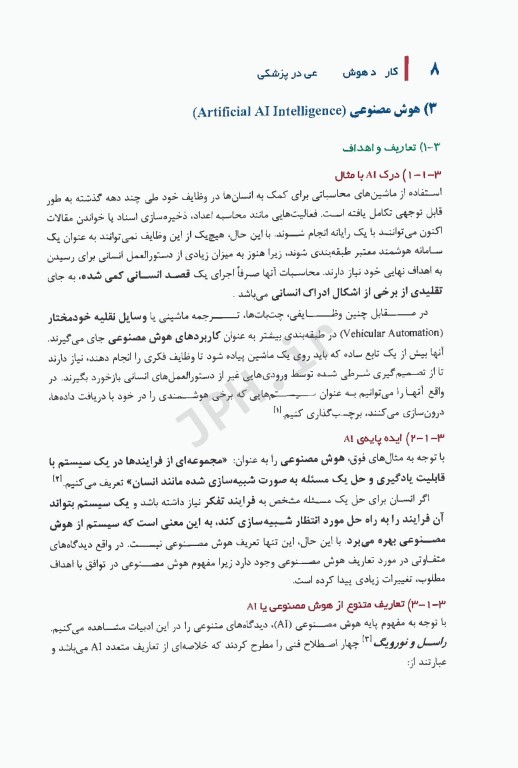 ۸ کار د هوش عی در پزشکی
۳) هوش مصنوعی (Artificial AI Intelligence)
۳-۱) تعاریف و اهداف
۳-۱-۱) درک AI با مثال
استفاده از ماشین‌های محاسباتی برای کمک به انسان‌ها در وظایف خود طی چند دهه گذشته به طور
قابل توجهی تکامل یافته است. فعالیت‌هایی مانند محاسبه اعداد، ذخیره‌سازی اسناد یا خواندن مقالات
اکنون می‌توانند با یک رایانه انجام شوند. با این حال، هیچ‌یک از این وظایف نمی‌توانند به عنوان یک
سامانه هوشمند معتبر طبقه‌بندی شوند، زیرا هنوز به میزان زیادی از دستورالعمل انسانی برای رسیدن
به اهداف نهایی خود نیاز دارند. محاسبات آنها صرفاً اجرای یک قصد انسانی کمی شده، به جای
تقلیدی از برخی از اشکال ادراک انسانی می‌باشد .
در مقابل چنین وظایفی، چت‌بات‌ها، ترجمه ماشینی یا وسایل نقلیه خودمختار
(Vehicular Automation) در طبقه‌بندی بیشتر به عنوان کاربردهای هوش مصنوعی جای می‌گیرند.
آنها بیش از یک تابع ساده که باید روی یک ماشین پیاده شود تا وظایف فکری را انجام دهند، نیاز دارند
تا از تصمیم‌گیری شرطی شده توسط ورودی‌هایی غیر از دستورالعمل‌های انسانی بازخورد بگیرند. در
واقع آنها را می‌توانیم به عنوان سیستم‌هایی که برخی هوشمندی را در خود با دریافت داده‌ها،
درون‌سازی می‌کنند، برچسب‌گذاری کنیم.[۱]
۳-۱-۲) ایده پایه‌ی AI
با توجه به مثال‌های فوق، هوش مصنوعی را به عنوان: «مجموعه‌ای از فرایندها در یک سیستم با
قابلیت یادگیری و حل یک مسئله به صورت شبیه‌سازی شده مانند انسان» تعریف می‌کنیم.[۲]
اگر انسان برای حل یک مسئله مشخص به فرایند تفکر نیاز داشته باشد و یک سیستم بتواند
آن فرایند را به راه حل مورد انتظار شبیه‌سازی کند، به این معنی است که سیستم از هوش
مصنوعی بهره می‌برد. با این حال، این تنها تعریف هوش مصنوعی نیست. در واقع دیدگاه‌های
متفاوتی در مورد تعاریف هوش مصنوعی وجود دارد زیرا مفهوم هوش مصنوعی در توافق با اهداف
مطلوب، تغییرات زیادی پیدا کرده است.
۳-۱-۳) تعاریف متنوع از هوش مصنوعی یا AI
با توجه به مفهوم پایه هوش مصنوعی (AI)، دیدگاه‌های متنوعی را در این ادبیات مشاهده می‌کنیم.
راسل و نورویگ[۳] چهار اصطلاح فنی را مطرح کردند که خلاصه‌ای از تعاریف متعدد AI می‌باشد و
عبارتند از:
JPH.ir